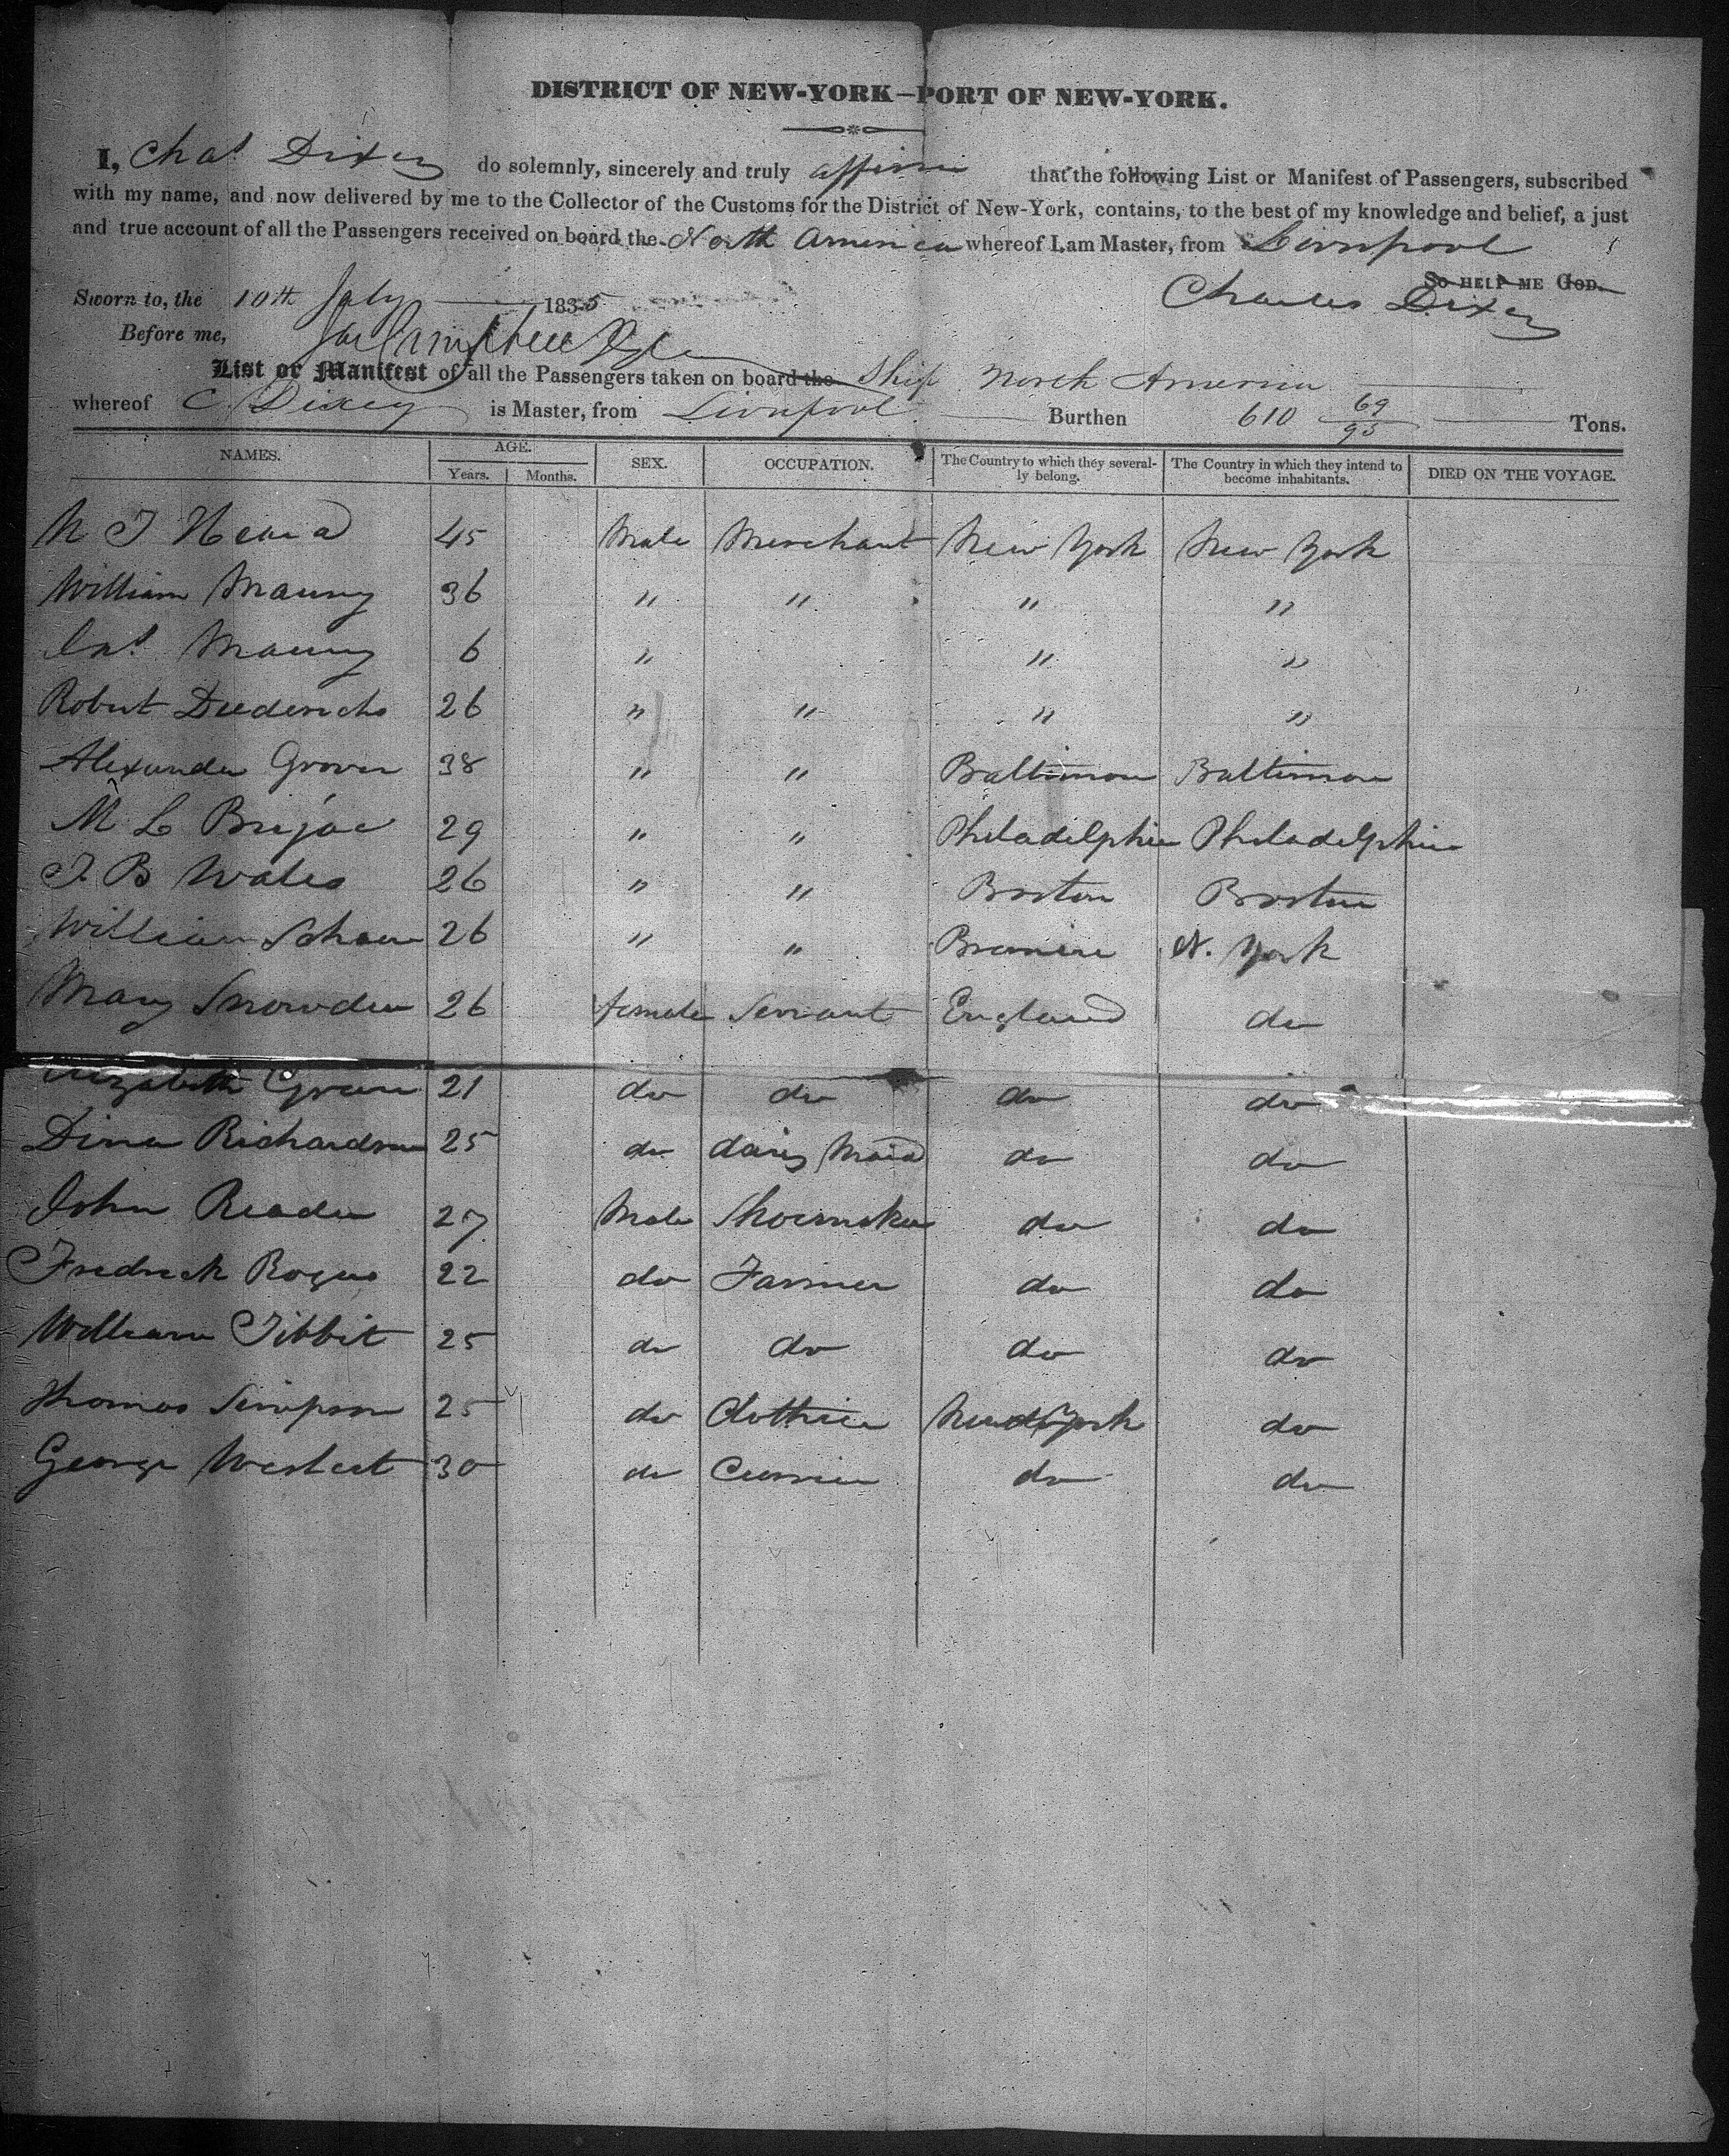 DISTRICT OF NEW-YORK—PORT OF NEW-YORK.
I, Chas Dixey do solemnly, sincerely and truly affirm that the following List or Manifest of Passengers, subscribed
with my name, and now delivered by me to the Collector of the Customs for the District of New-York, contains, to the best of my knowledge and belief, a just
and true account of all the Passengers received on board the North America whereof I am Master, from Liverpool
So help me God.
Sworn to, the 10th July 1835 Charles Dixey
Before me,
List or Manifest of all the Passengers taken on board the Ship North America
whereof C. Dixey is Master, from Liverpool Burthen 610 69/95 Tons.
NAMES. AGE. Years. Months. SEX. OCCUPATION. The Country to which they severally belong. The Country in which they intend to become inhabitants. DIED ON THE VOYAGE.
45 Male Merchant New York New York
William Maury 36 " " " "
Maury 6 " " "
Robert Deederichs 26 " " " "
Alexander Grover 38 " " Baltimore Baltimore
M L 29 " " Philadelphia Philadelphia
T. B Wales 26 " " Boston Boston
William 26 " " N. York
Mary Snowden 26 female Servant England do
Elizabeth Green 21 do do do do
Dina Richardson 25 do dairy Maid do do
John Reader 27 Male Shoemaker do do
Fredrick 22 do Farmer do do
William Tibbit 25 do do do do
Thomas Simpson 25 do Clothier New York do
George 30 do Currier do do